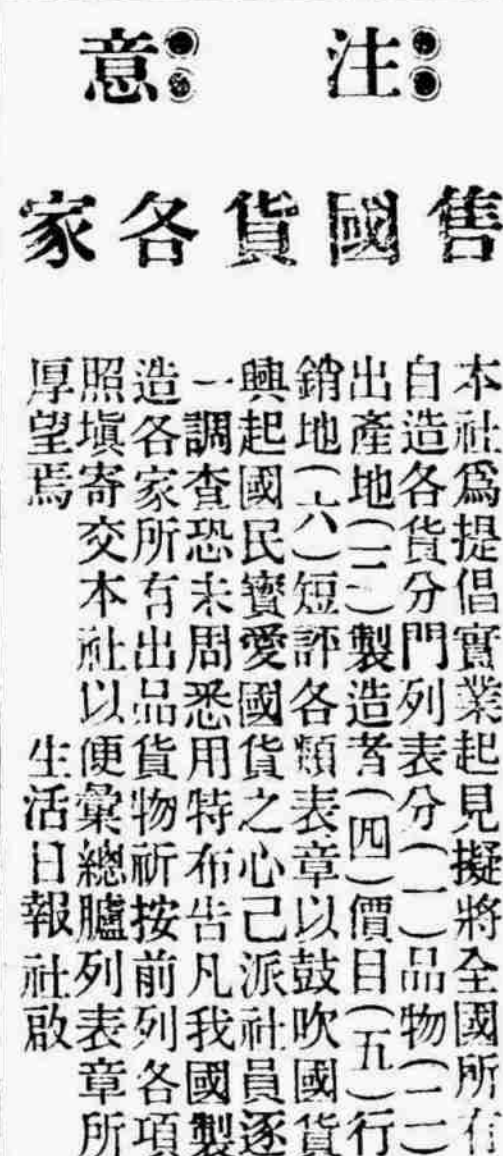 注意
售國貨各家
本社爲提倡實業起見擬將全國所有
自造各貨分門列表分(一)品物(二)
出產地(三)製造者(四)價目(五)行
銷地(六)短評各類表章以鼓吹國貨
興起國民寶愛國貨之心已派社員逐
一調查恐未周悉用特布告凡我國製
造各家所有出品貨物祈按前列各項
照塡寄交本社以便彙總臚列表章所
厚望焉 生活日報社啟